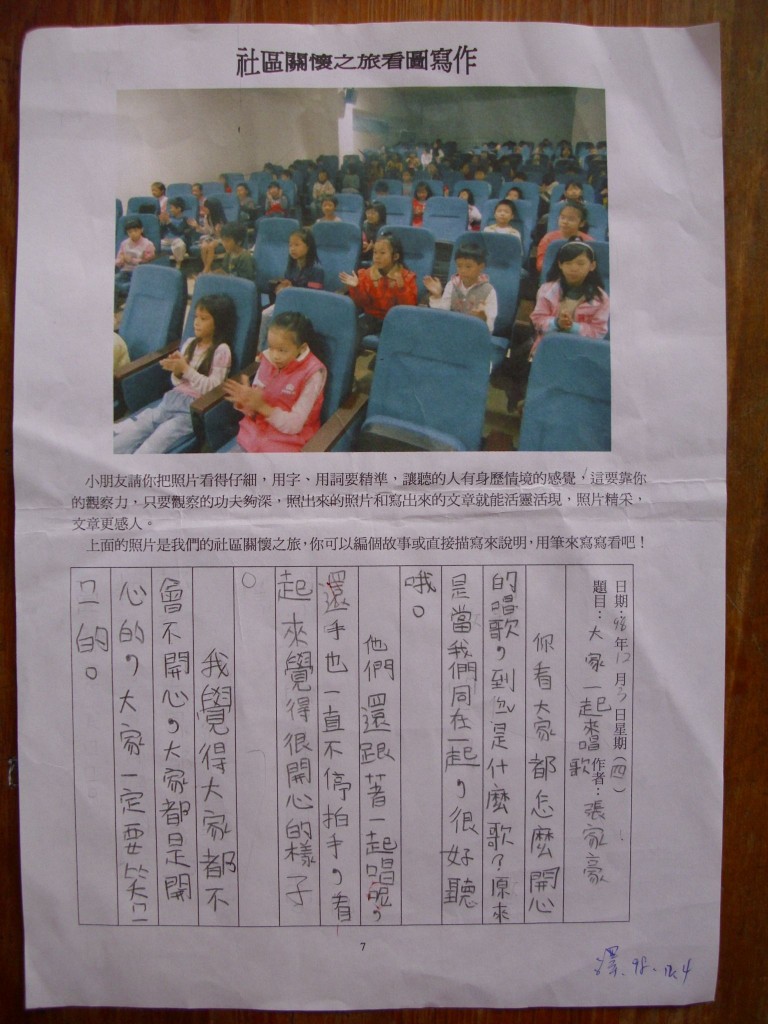 社區關懷之旅看圖寫作
小朋友請你把照片看得仔細，用字、用詞要精準，讓聽的人有身歷情境的感覺，這要靠你
的觀察力，只要觀察的功夫夠深，照出來的照片和寫出來的文章就能活靈活現，照片精采，
文章更感人。
上面的照片是我們的社區關懷之旅，你可以編個故事或直接描寫來說明，用筆來寫寫看吧！
日期：98年12月3日星期（四）
題目：大家一起來唱歌 作者：張家豪
你看大家都怎麼開心
的唱歌，到底是什麼歌？原來
是當我們同在一起，很好聽
哦。
他們還跟著一起唱呢，
還手也一直不停拍手，看
起來覺得很開心的樣子
。
我覺得大家都不
會不開心，大家都是開
心的，大家一定要笑口
的。
7
98.12.4